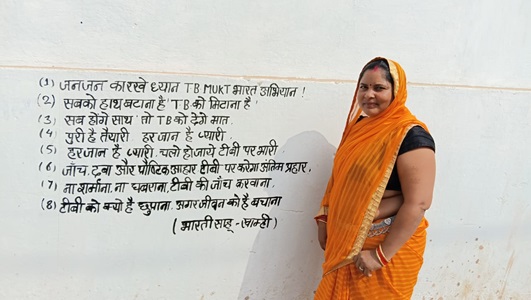 (1) जनजन कारखे ध्यान TB MUKT भारत अभियान !
(2) सबको हाथ बटाना है TB को मिटाना है
(3) सब होंगे साथ तो TB को देंगे मात.
(4) पुरी है तैयारी हर जान है प्यारी.
(5) हर जान है प्यारी. चलो हो जाये टीबी पर भारी
(6) जाँच, दवा और पौष्टिक आहार टीबी पर करेगा अंतिम प्रहार,
(7) ना शर्माना. ना घबराना, टीबी की जाँच करवाना.
(8) टीबी को क्यो है छुपाना. अगर जीवन को है बचाना
(भारती साहू - खाम्ही)